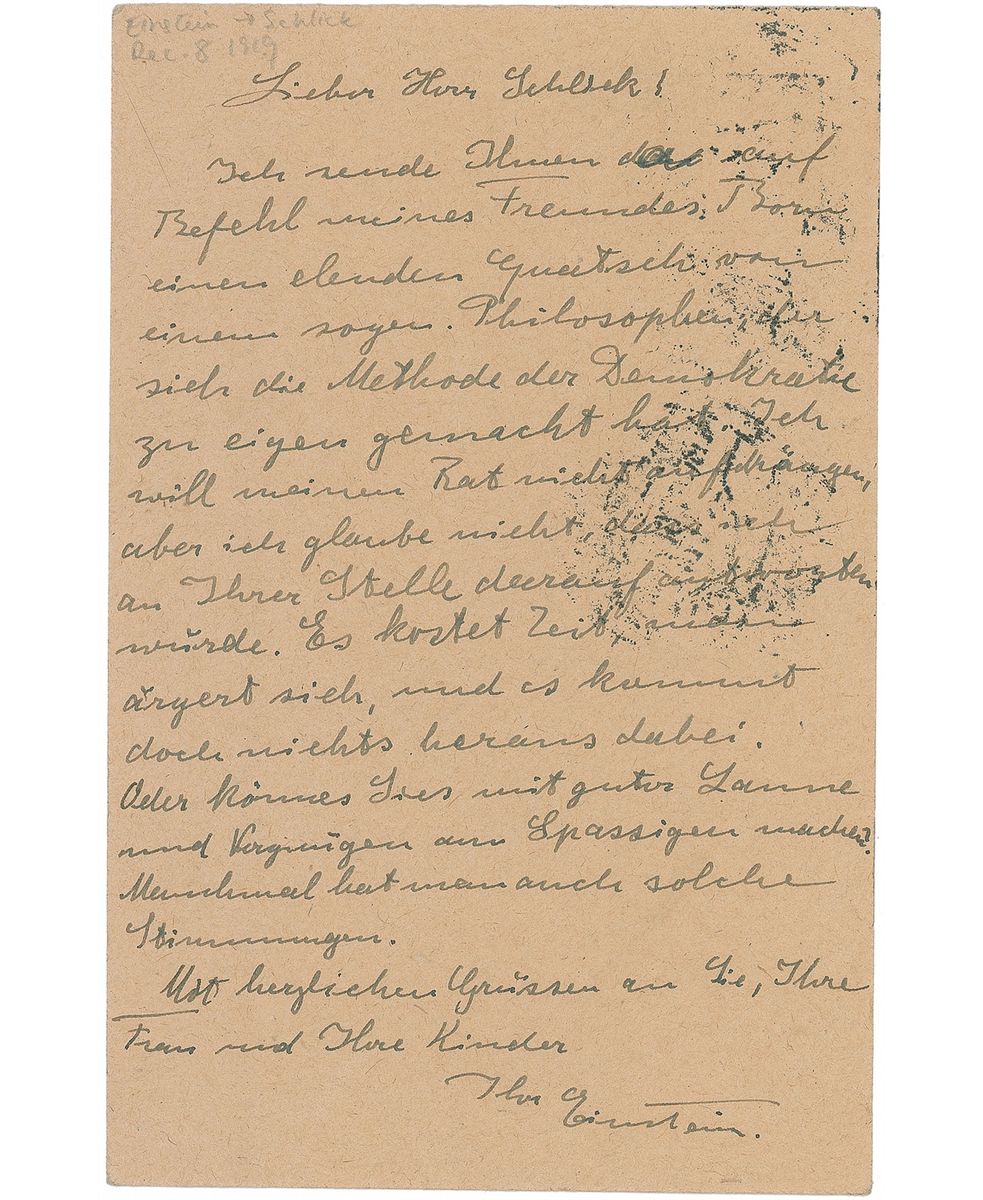 Einstein → Schlick
Dec. 8 1919
Lieber Herr Schlick!
Ich sende Ihnen da auf
Befehl meines Freundes Born
einen elenden Quatsch von
einem sogen. Philosophen, der
sich die Methode der Demokratie
zu eigen gemacht hat. Ich
will meinen Rat nicht aufdrängen,
aber ich glaube nicht, dass ich
an Ihrer Stelle darauf antworten
würde. Es kostet Zeit, man
ärgert sich, und es kommt
doch nichts heraus dabei.
Oder können Sies mit guter Laune
und Vergnügen am Spassigen machen?
Manchmal hat man auch solche
Stimmungen.
Mit herzlichen Grüssen an Sie, Ihre
Frau und Ihre Kinder
Ihr Einstein.